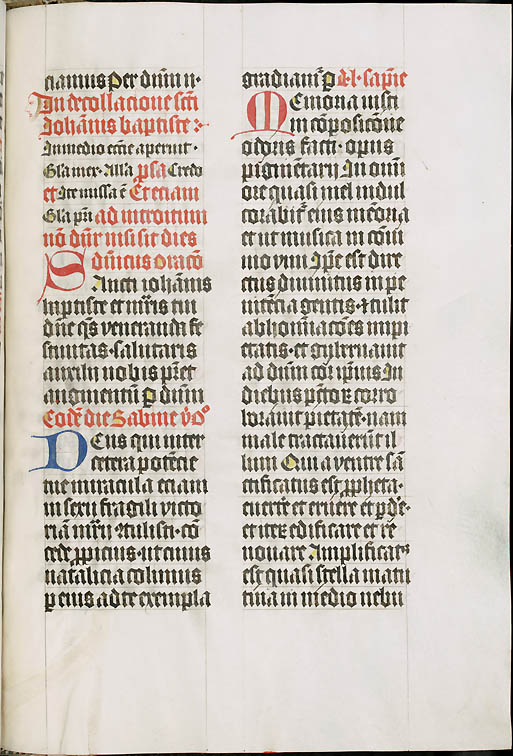 ciamus Per dnm n·
In decollacione scti
Iohannis baptiste
In medio ecclie aperuit·
Gla mer· Alla psa Credo
et Ite missa e Et eciam
Gla pri ad introitum
no dr nisi sit dies
dnicus Oraco
Sancti iohannis
baptiste et mris tui
dne qs veneranda fe
stiuitas· salutaris
auxilij nobis pret
augmentum p dnm
Eode die Sabine v o
Deus qui inter
cetera potencie
tue miracula eciam
in sexu fragili victo
riam mrij 9tulisti· con
cede ppicius· ut cuius
natalicia colimus
p eius ad te exempla
gradiam p d· l· sapie
Memoria iusti
in composicione
odoris facti· opus
pigmentarij In omni
ore quasi mel indul
corabit eius memoria
et ut musica in conui
uio vini Ipe est dire
ctus diuinitus in pe
nitecia gentis· et tulit
abhominacoes impi
etatis· et gubernauit
ad dnm cor ipius In
diebus pctor corro
borauit pietate· nam
male tractauerut il
lum Qui a ventre san
ctificatus est ppheta·
euertere et eruere et pde·
et iter edificare et re
nouare Amplificat9
est quasi stella matu
tina in medio nebu